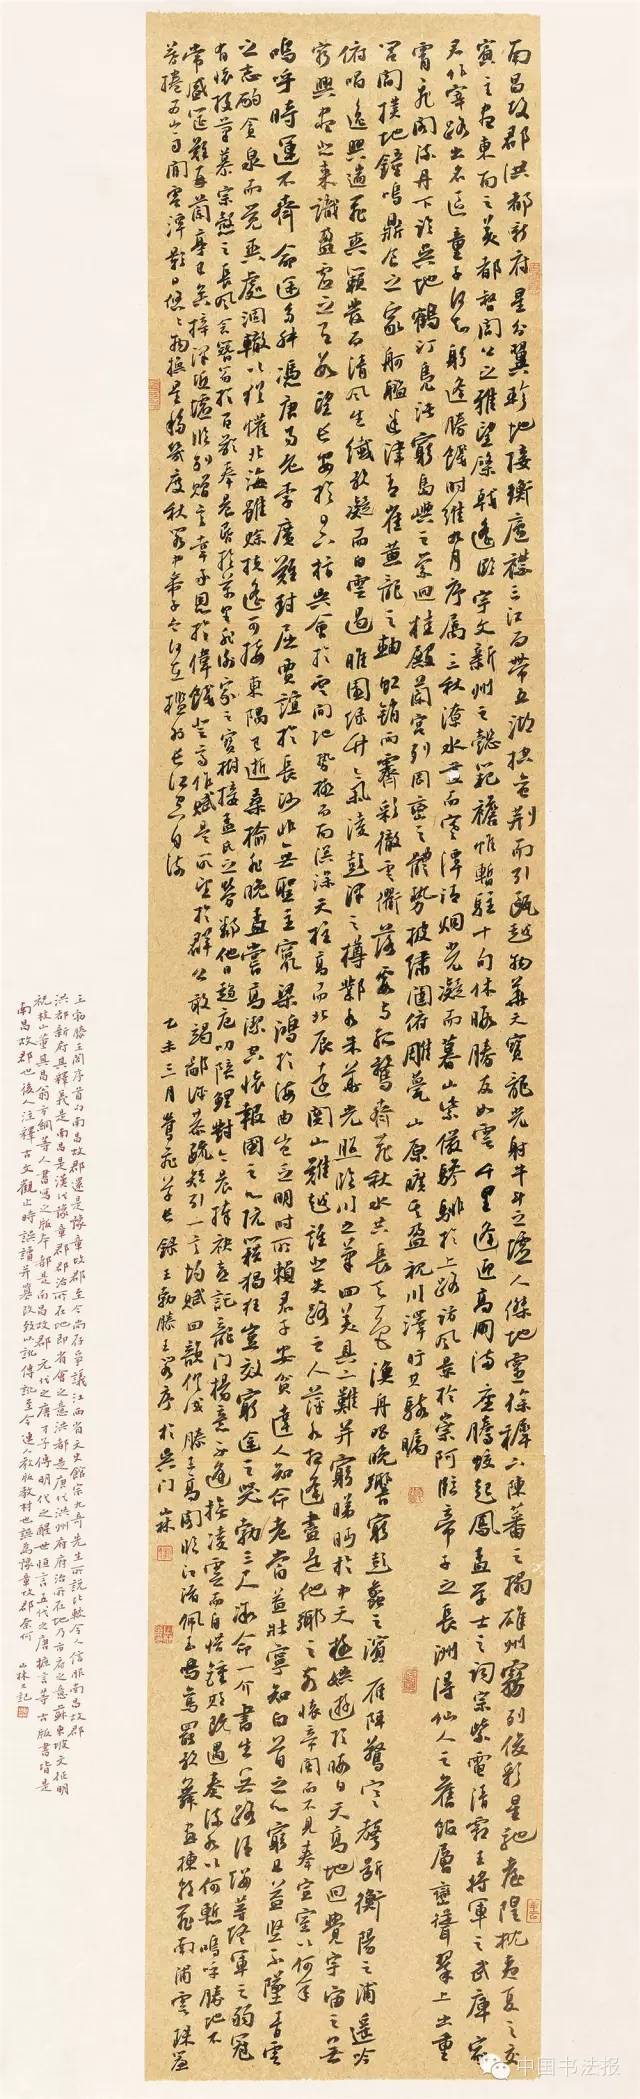 南昌故郡洪都新府星分翼軫地接衡廬襟三江而帶五湖控蠻荊而引甌越物華天寶龍光射牛斗之墟人傑地靈徐穉下陳蕃之榻雄州霧列俊彩星馳臺隍枕夷夏之交
賓主盡東南之美都督閻公之雅望棨戟遙臨宇文新州之懿範襜帷暫駐十旬休暇勝友如雲千里逢迎高朋滿座騰蛟起鳳孟學士之詞宗紫電清霜王將軍之武庫家
君作宰路出名區童子何知躬逢勝餞時維九月序屬三秋潦水盡而寒潭清烟光凝而暮山紫儼驂騑於上路訪風景於崇阿臨帝子之長洲得仙人之舊館層巒聳翠上出重
霄飛閣流丹下臨無地鶴汀鳧渚窮島嶼之縈迴桂殿蘭宮列岡巒之體勢披繡闥俯雕甍山原曠其盈視川澤盱其駭矚
閭閻撲地鐘鳴鼎食之家舸艦迷津青雀黃龍之軸虹銷雨霽彩徹雲衢落霞與孤鶩齊飛秋水共長天一色漁舟唱晚響窮彭蠡之濱雁陣驚寒聲斷衡陽之浦遙吟
俯暢逸興遄飛爽籟發而清風生纖歌凝而白雲遏睢園綠竹氣凌彭澤之樽鄴水朱華光照臨川之筆四美具二難并窮睇眄於中天極娛遊於暇日天高地迥覺宇宙之無
窮興盡悲來識盈虛之有數望長安於日下指吳會於雲間地勢極而南溟深天柱高而北辰遠關山難越誰悲失路之人萍水相逢盡是他鄉之客懷帝閽而不見奉宣室以何年
嗚呼時運不齊命途多舛馮唐易老李廣難封屈賈誼於長沙非無聖主竄梁鴻於海曲豈乏明時所賴君子安貧達人知命老當益壯寧知白首之心窮且益堅不墜青雲
之志酌貪泉而覺爽處涸轍以猶懽北海雖賒扶搖可接東隅已逝桑榆非晚孟嘗高潔空懷報國之心阮籍猖狂豈效窮途之哭勃三尺微命一介書生無路請纓等終軍之弱冠
有懷投筆慕宗愨之長風舍簪笏於百齡奉晨昏於萬里非謝家之寶樹接孟氏之芳鄰他日趨庭叨陪鯉對今晨捧袂喜託龍門楊意不逢撫凌雲而自惜鍾期既遇奏流水以何慚嗚呼勝地不
常盛筵難再蘭亭已矣梓澤丘墟臨別贈言幸承恩於偉餞登高作賦是所望於群公敢竭鄙誠恭疏短引一言均賦四韻俱成滕王高閣臨江渚佩玉鳴鸞罷歌舞畫棟朝飛南浦雲珠簾
暮捲西山雨閒雲潭影日悠悠物換星移幾度秋閣中帝子今何在檻外長江空自流
乙未三月鶯飛草長錄王勃滕王閣序於吳門山林
王勃滕王閣序首句南昌故郡還是豫章故郡至今尚存爭議江西省文史館宗九奇先生所說比較令人信服南昌故郡
洪都新府其釋義是南昌是漢代豫章郡郡治所在地即省會之意洪都是唐代洪州府府治所在地乃首府之意蘇東坡文徵明
祝枝山董其昌翁方綱等人書寫之版本都是南昌故郡元代之唐才子傳明代之醒世恒言五代之唐摭言等古版書皆是
南昌故郡也後人注釋古文觀止時誤讀并篡改致以訛傳訛至今連人教版教材也誤為豫章故郡奈何 山林又記
中国书法报